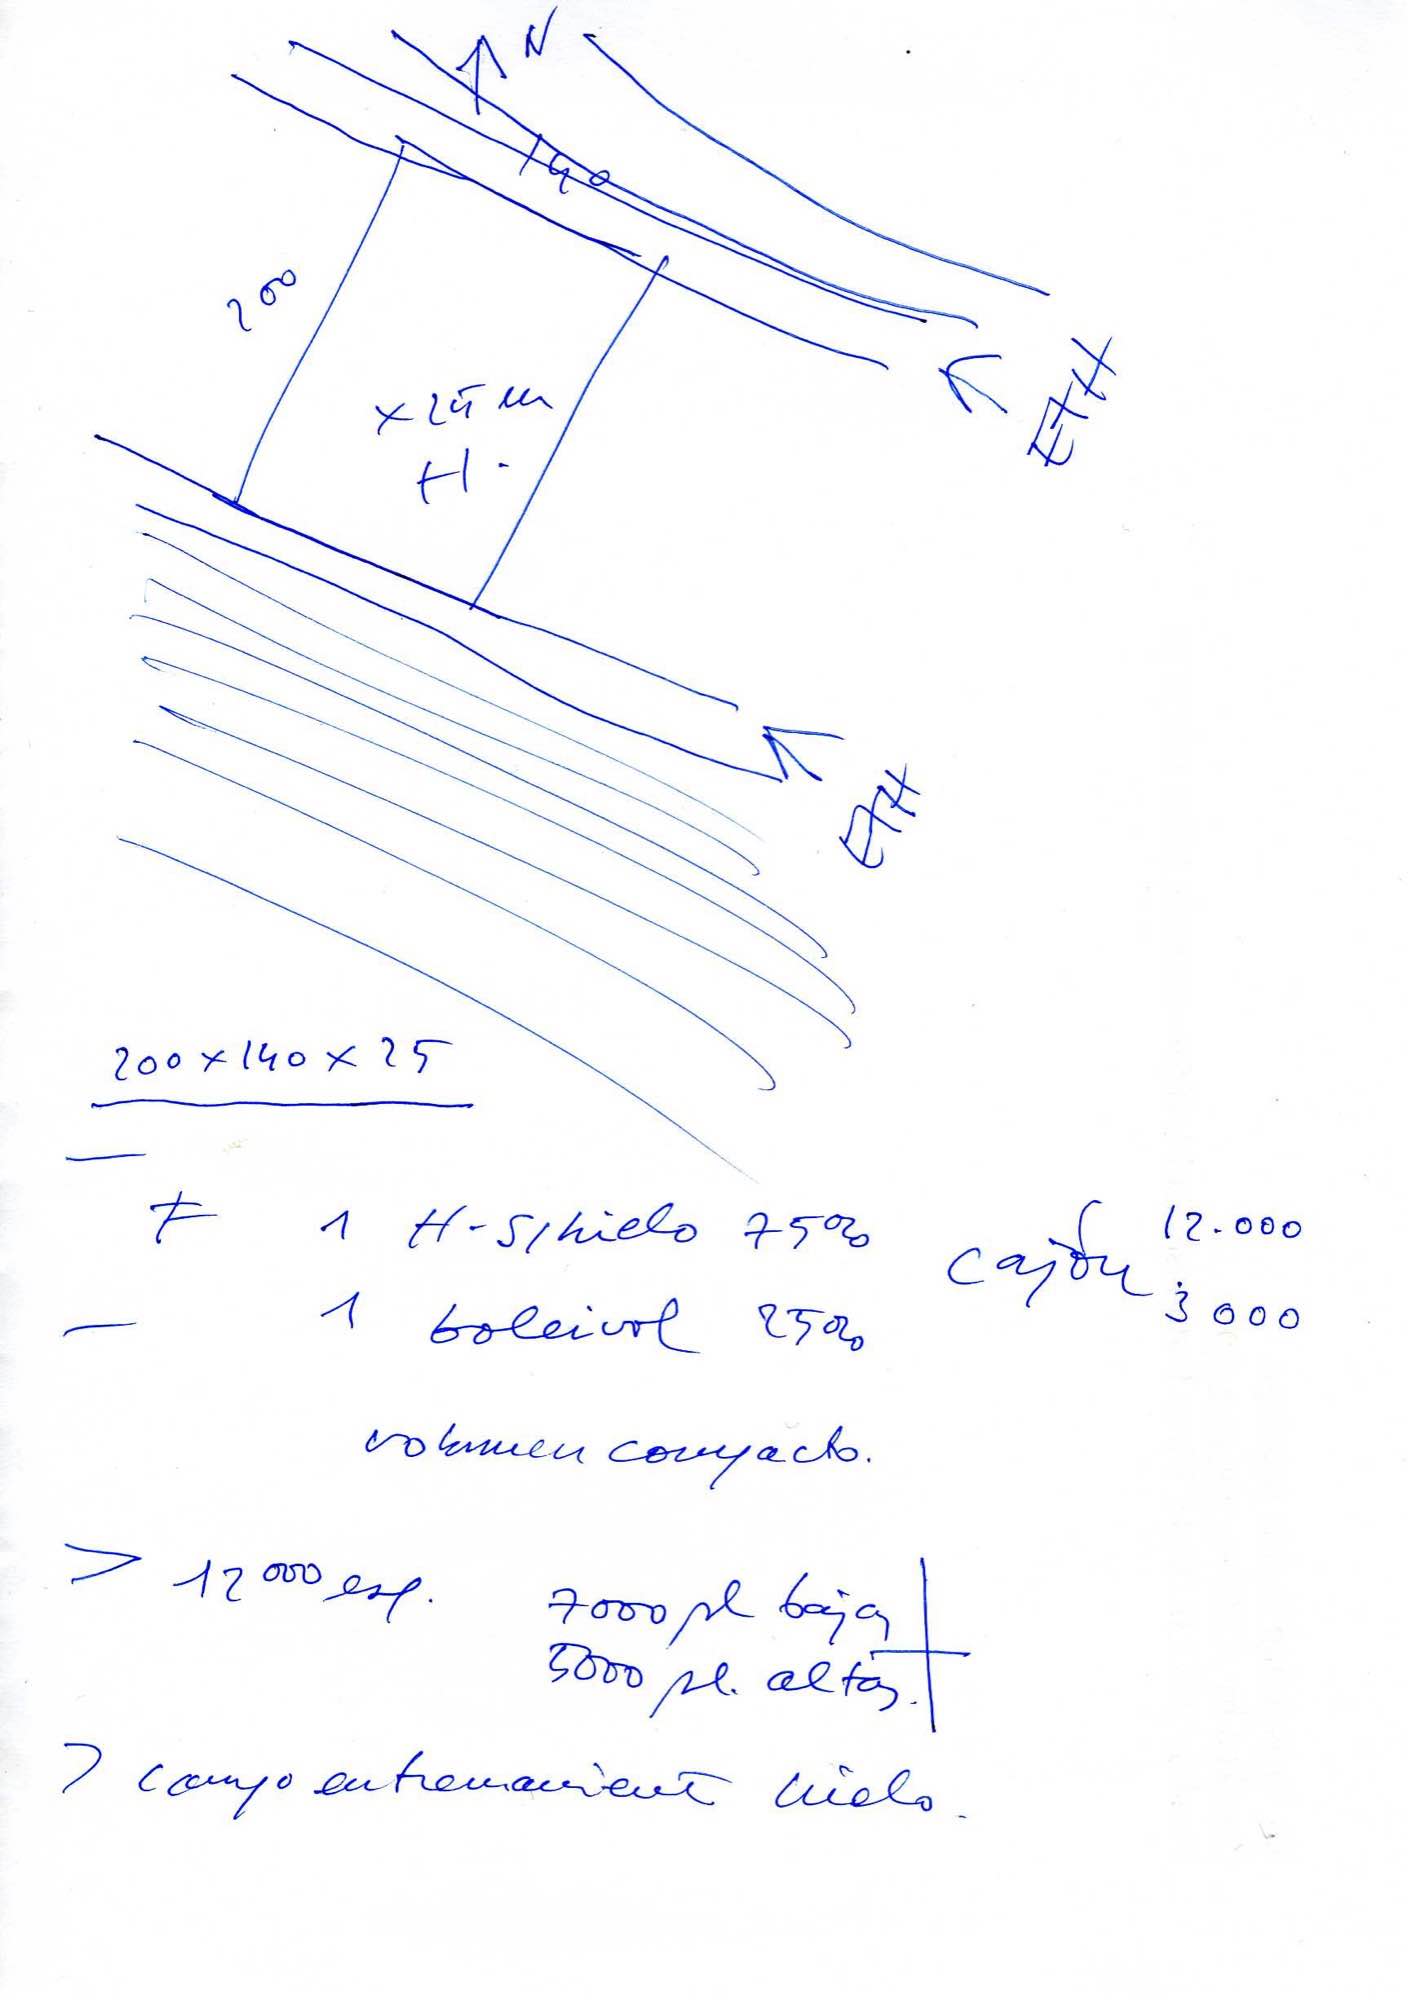 N
140
200
x 25 m
H.
EXH
EXH
200 x 140 x 25
1 H-S/hielo 75% cajón 12.000
1 boleivol 25% 3000
volumen compacto.
> 12000 esp. 7000 pl bajas
5000 pl. altas.
> campo entrenamiento hielo.